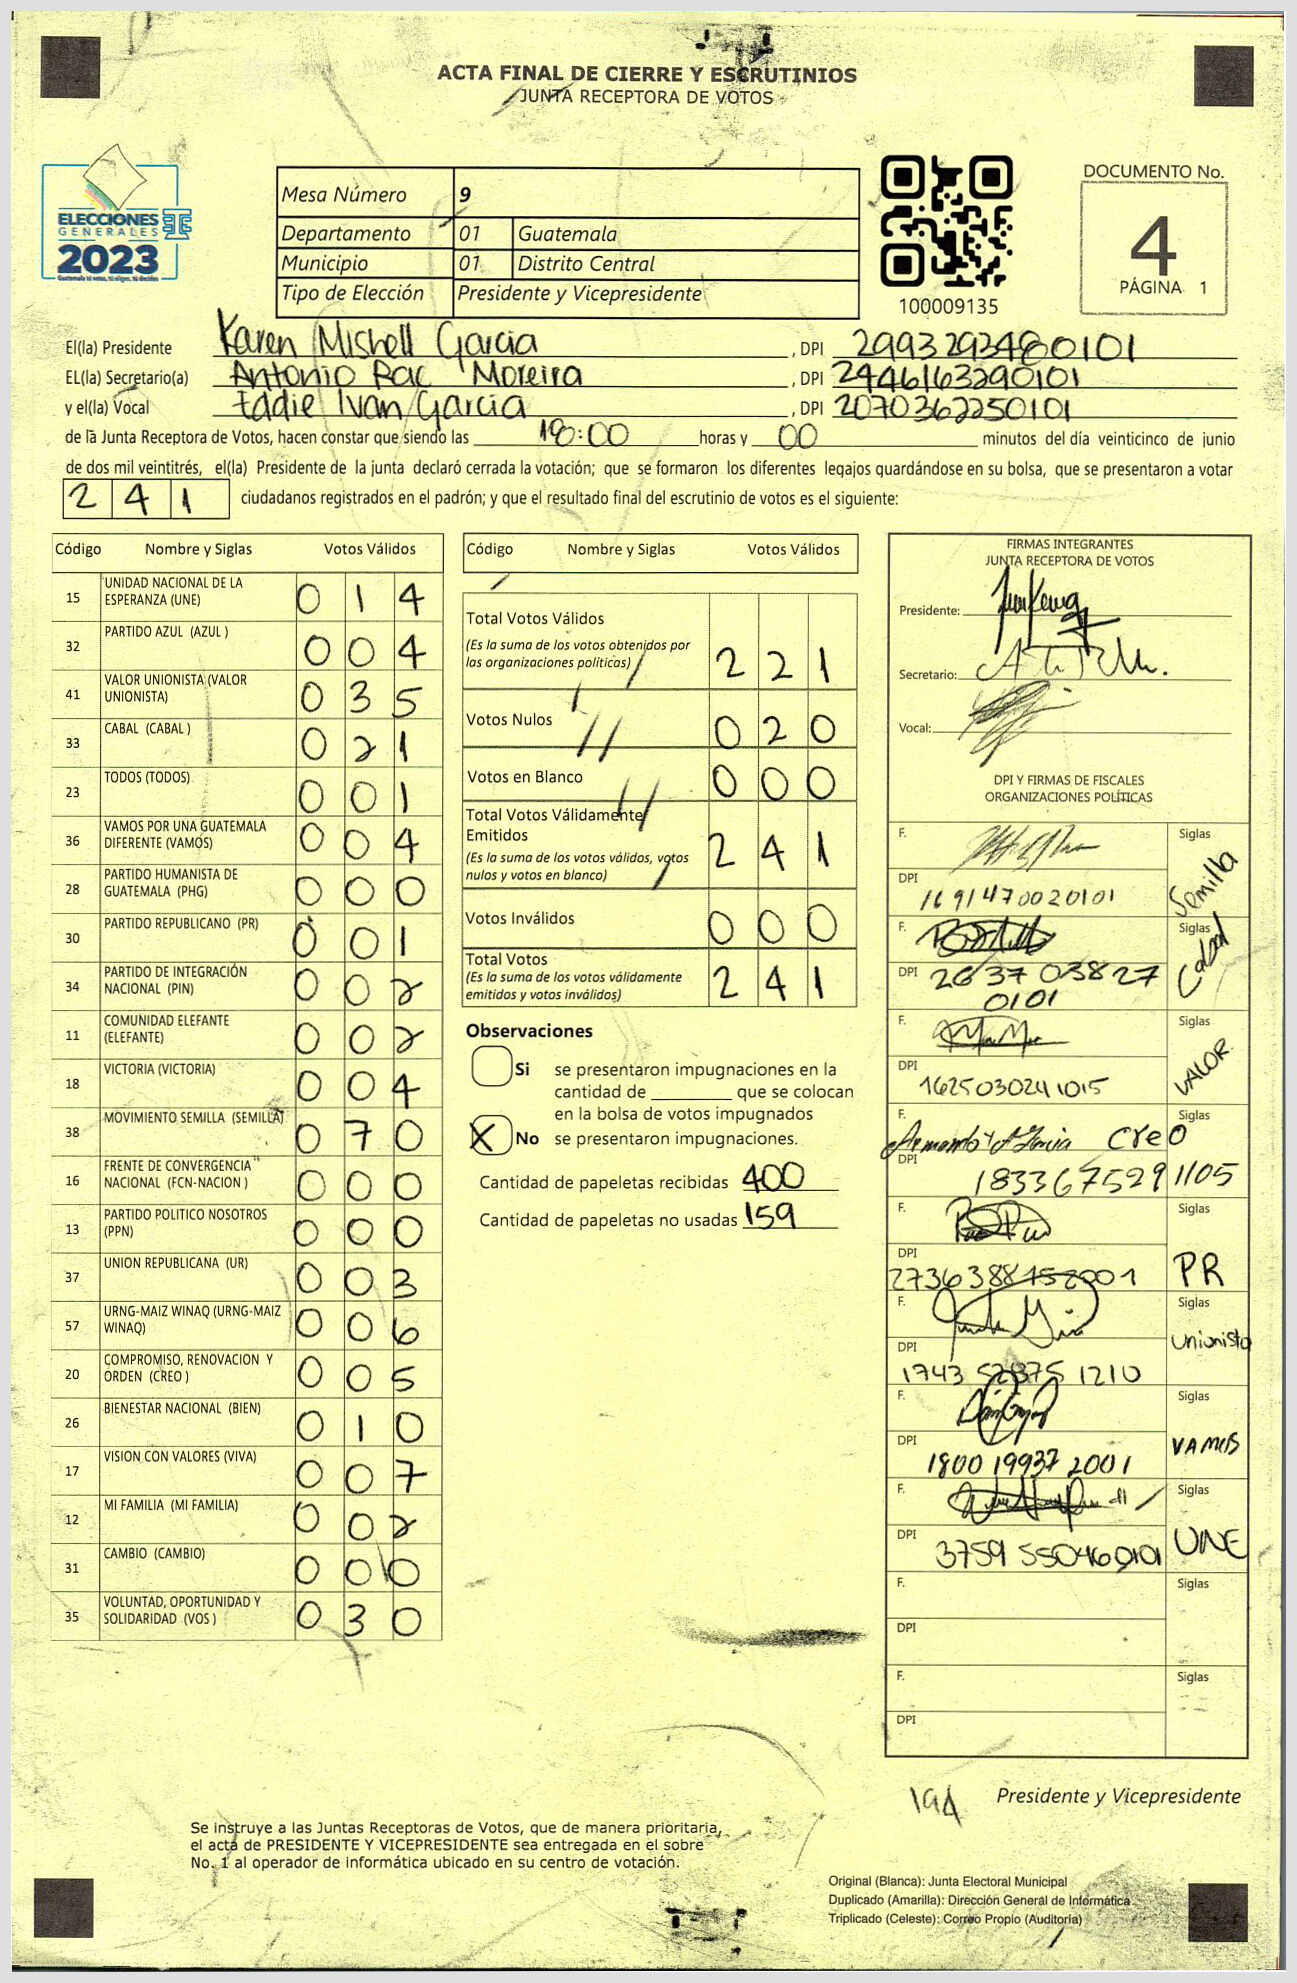 ACTA FINAL DE CIERRE Y ESCRUTINIOS
JUNTA RECEPTORA DE VOTOS
ELECCIONES
GENERALES
2023
Mesa Número 9
Departamento 01 Guatemala
Municipio 01 Distrito Central
Tipo de Elección Presidente y Vicepresidente
100009135
DOCUMENTO No.
4
PÁGINA 1
El(la) Presidente Karen Mishell Garcia, DPI 2993293480101
EL(la) Secretario(a) Antonio Rac Moreira, DPI 2446163290101
y el(la) Vocal Eddie Ivan Garcia, DPI 2070362250101
de la Junta Receptora de Votos, hacen constar que siendo las 18:00 horas y 00 minutos del día veinticinco de junio
de dos mil veintitrés, el(la) Presidente de la junta declaró cerrada la votación; que se formaron los diferentes legajos guardándose en su bolsa, que se presentaron a votar
241 ciudadanos registrados en el padrón; y que el resultado final del escrutinio de votos es el siguiente:
Código Nombre y Siglas Votos Válidos
15 UNIDAD NACIONAL DE LA ESPERANZA (UNE) 014
32 PARTIDO AZUL (AZUL ) 004
41 VALOR UNIONISTA (VALOR UNIONISTA) 035
33 CABAL (CABAL ) 021
23 TODOS (TODOS) 001
36 VAMOS POR UNA GUATEMALA DIFERENTE (VAMOS) 004
28 PARTIDO HUMANISTA DE GUATEMALA (PHG) 000
30 PARTIDO REPUBLICANO (PR) 001
34 PARTIDO DE INTEGRACIÓN NACIONAL (PIN) 002
11 COMUNIDAD ELEFANTE (ELEFANTE) 002
18 VICTORIA (VICTORIA) 004
38 MOVIMIENTO SEMILLA (SEMILLA) 070
16 FRENTE DE CONVERGENCIA NACIONAL (FCN-NACION ) 000
13 PARTIDO POLITICO NOSOTROS (PPN) 000
37 UNION REPUBLICANA (UR) 003
57 URNG-MAIZ WINAQ (URNG-MAIZ WINAQ) 006
20 COMPROMISO, RENOVACION Y ORDEN (CREO ) 005
26 BIENESTAR NACIONAL (BIEN) 010
17 VISION CON VALORES (VIVA) 007
12 MI FAMILIA (MI FAMILIA) 002
31 CAMBIO (CAMBIO) 000
35 VOLUNTAD, OPORTUNIDAD Y SOLIDARIDAD (VOS ) 030
Código Nombre y Siglas Votos Válidos
Total Votos Válidos
(Es la suma de los votos obtenidos por
las organizaciones políticas) 221
Votos Nulos 020
Votos en Blanco 000
Total Votos Válidamente
Emitidos
(Es la suma de los votos válidos, votos
nulos y votos en blanco) 241
Votos Inválidos 000
Total Votos
(Es la suma de los votos válidamente
emitidos y votos inválidos) 241
Observaciones
Si se presentaron impugnaciones en la
cantidad de ________ que se colocan
en la bolsa de votos impugnados
X No se presentaron impugnaciones.
Cantidad de papeletas recibidas 400
Cantidad de papeletas no usadas 159
FIRMAS INTEGRANTES
JUNTA RECEPTORA DE VOTOS
Presidente:
Secretario:
Vocal:
DPI Y FIRMAS DE FISCALES
ORGANIZACIONES POLÍTICAS
F. Siglas Semilla
DPI 1691470020101
F. Siglas Cabal
DPI 2637 03827 0101
F. Siglas VALOR
DPI 1625030241015
F. Siglas Creo
DPI 1833675291105
F. Siglas PR
DPI
F. Siglas Unionista
DPI 1743 52875 1210
F. Siglas VAMOS
DPI 1800 19937 2001
F. Siglas UNE
DPI 3759 550460101
F. Siglas
DPI
F. Siglas
DPI
Presidente y Vicepresidente
Se instruye a las Juntas Receptoras de Votos, que de manera prioritaria,
el acta de PRESIDENTE Y VICEPRESIDENTE sea entregada en el sobre
No. 1 al operador de informática ubicado en su centro de votación.
Original (Blanca): Junta Electoral Municipal
Duplicado (Amarilla): Dirección General de Informática
Triplicado (Celeste): Correo Propio (Auditoría)